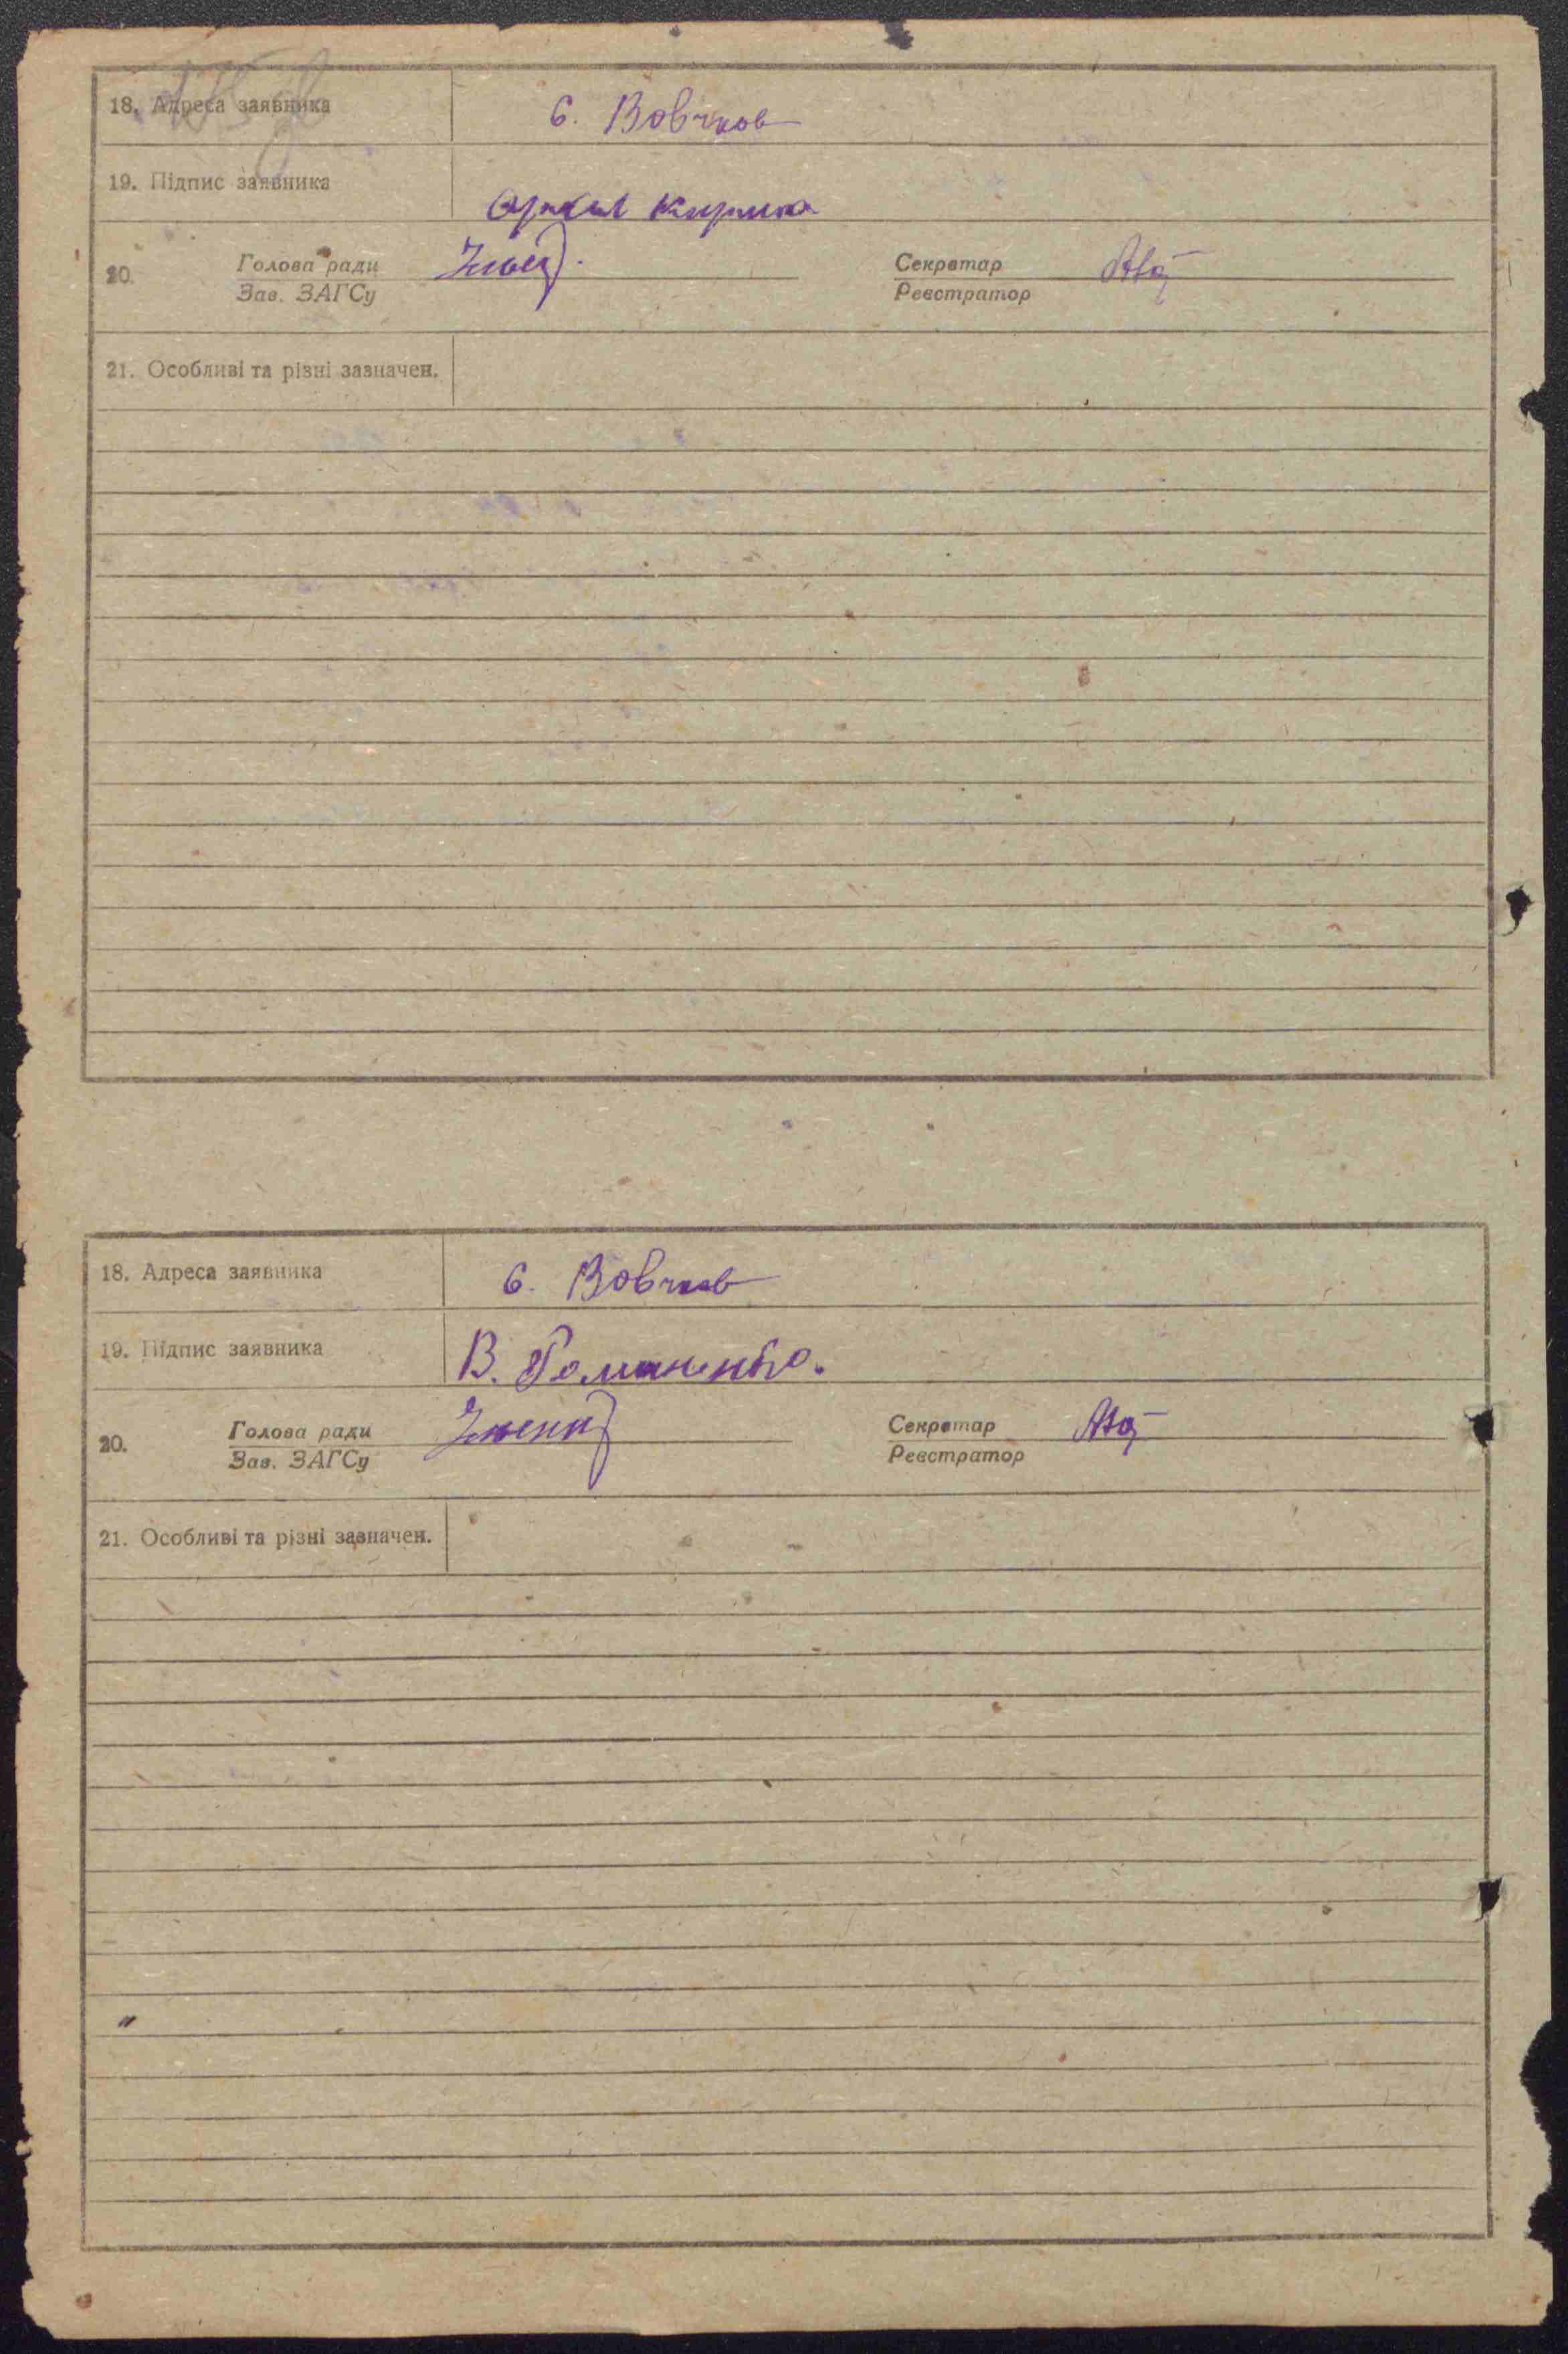 18. Адреса заявника с. Вовчков
19. Підпис заявника Кирика
20. Голова ради Секретар
Зав. ЗАГСу Реєстратор
21. Особливі та різні зазначен.
18. Адреса заявника с. Вовчков
19. Підпис заявника В. Романенко.
20. Голова ради Секретар
Зав. ЗАГСу Реєстратор
21. Особливі та різні зазначен.